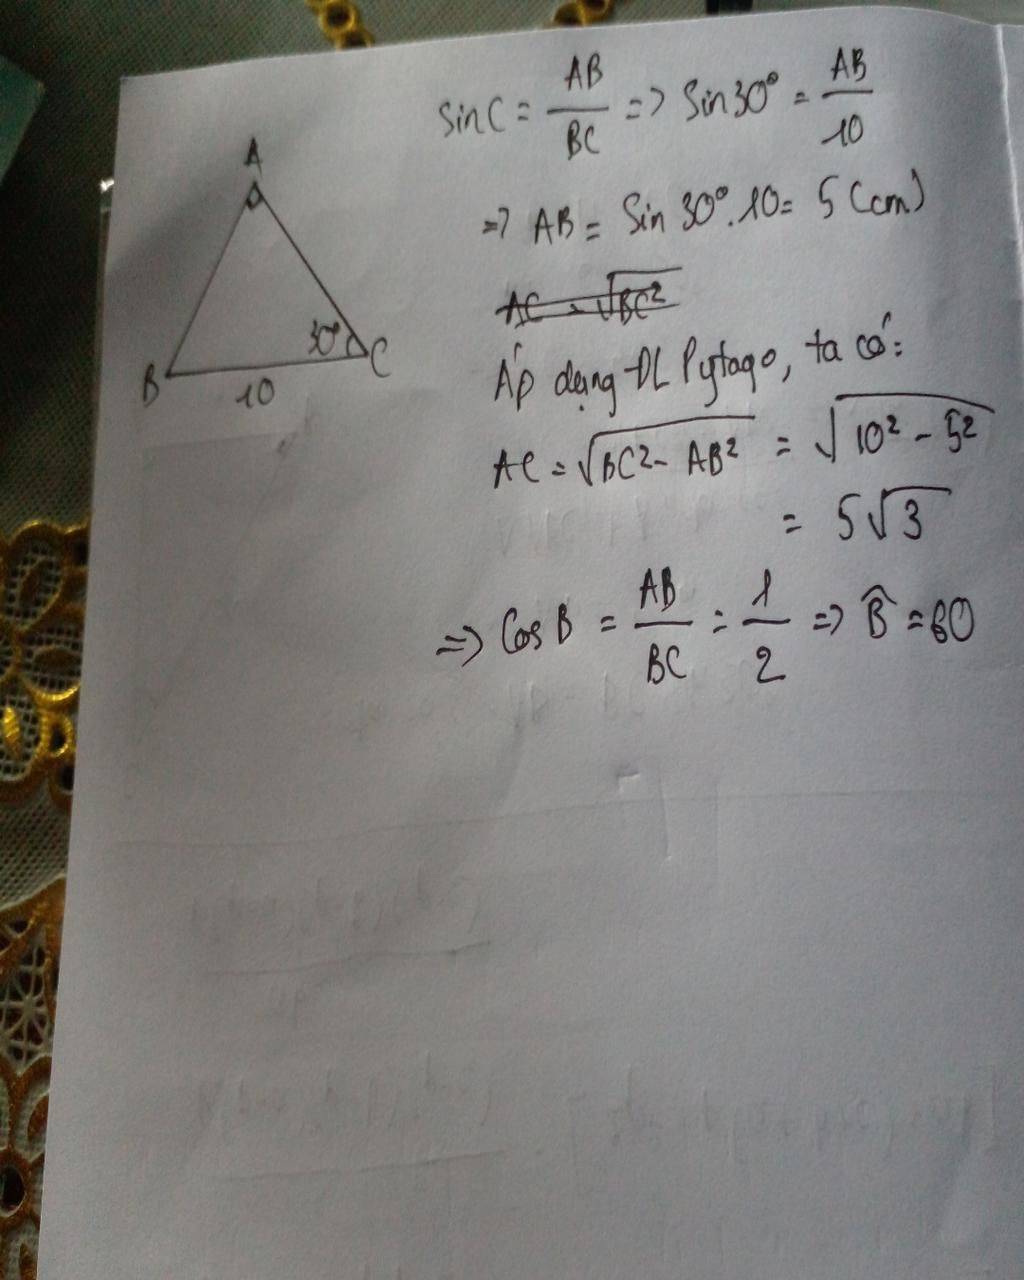 A
B
C
30°
10
Sin C = AB/BC => Sin 30° = AB/10
=> AB = Sin 30°.10 = 5 (cm)
AC = √BC²
Áp dụng ĐL Pytago, ta có:
AC = √BC² - AB² = √10² - 5²
= 5√3
=> Cos B = AB/BC = 1/2 => B̂ = 60